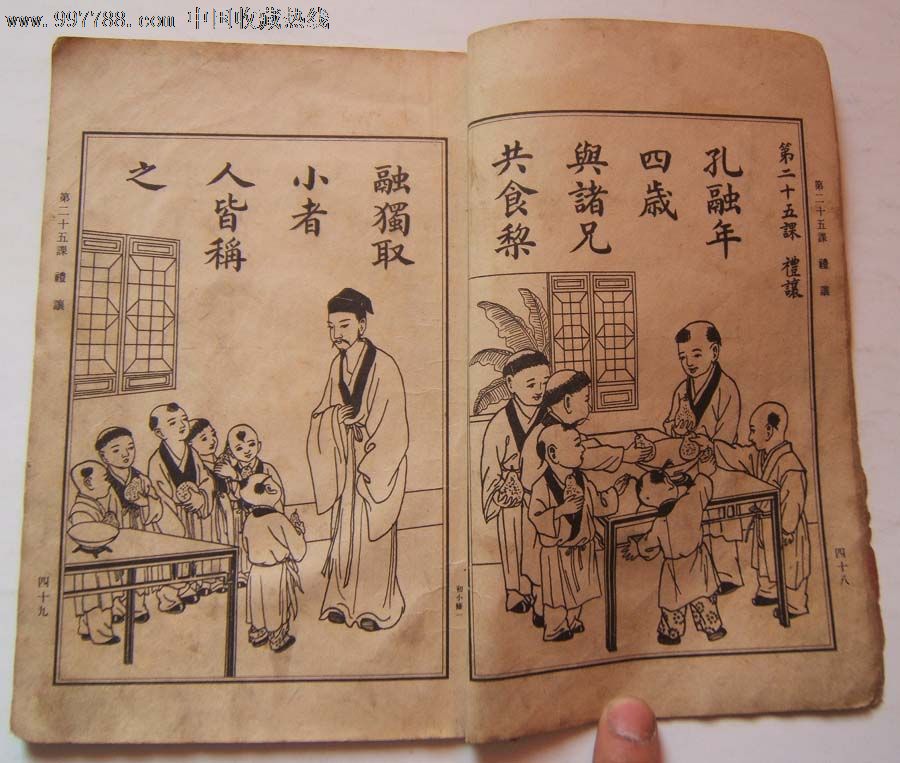 www.997788.com 中国收藏热线
第二十五課 禮讓
第二十五課 禮讓
孔融年
四歲
與諸兄
共食梨
四十八
融獨取
小者
人皆稱
之
第二十五課 禮讓
四十九